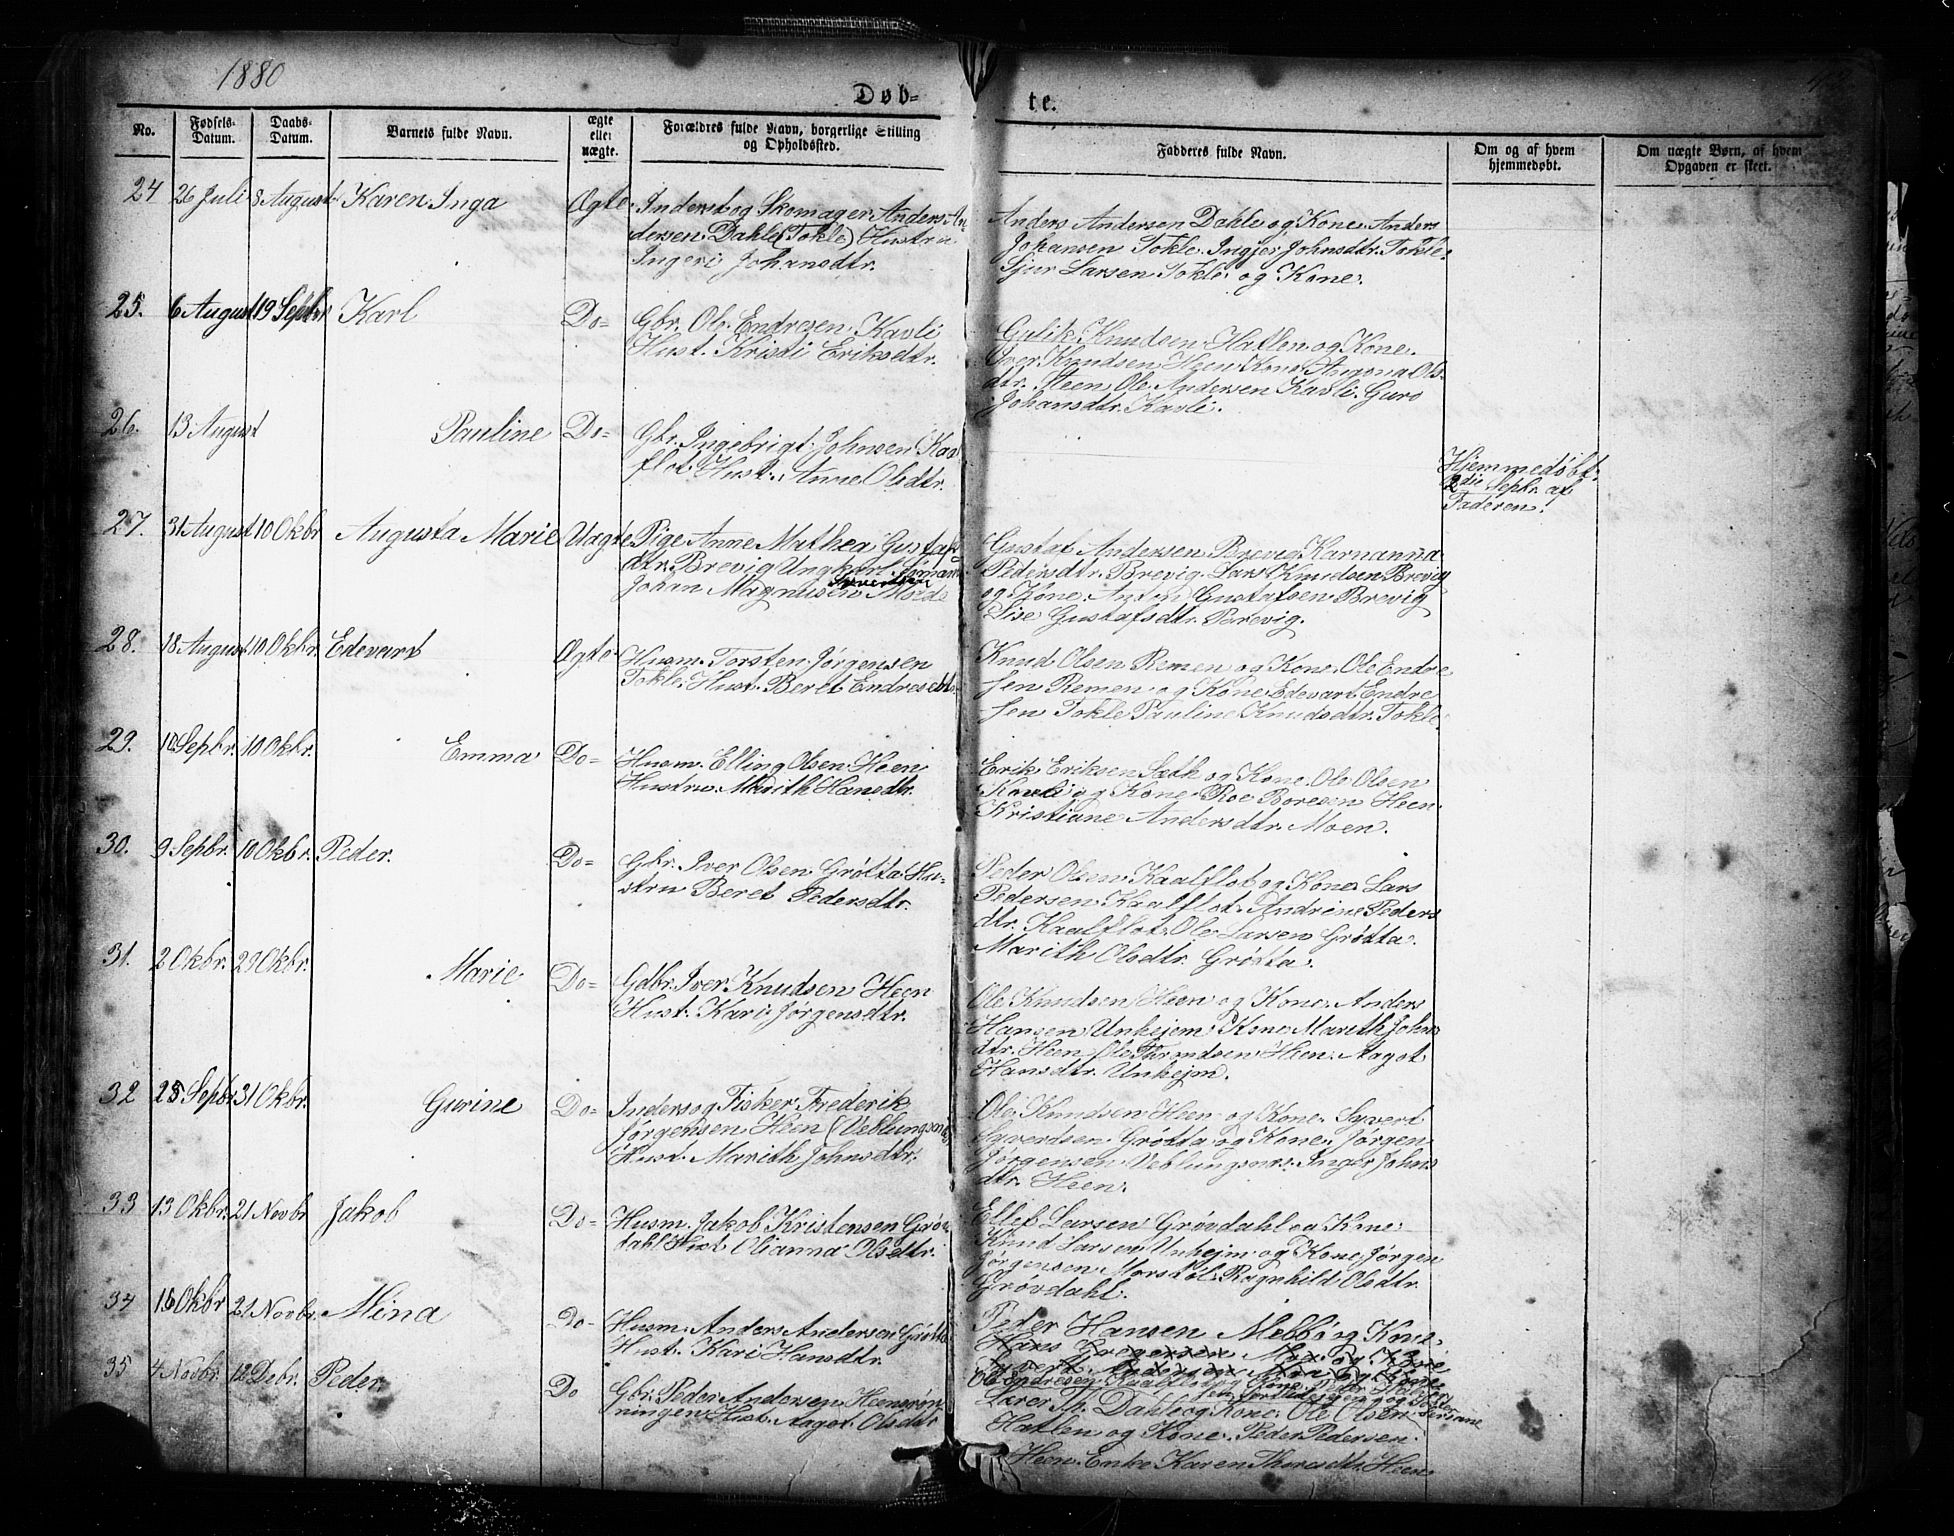 1880
Døb-
te.
No.
Fødsels-
Datum.
Daabs-
Datum.
Barnets fulde Navn.
ægte
eller
uægte.
Forældres fulde Navn, borgerlige Stilling
og Opholdssted.
Fadderes fulde Navn.
Om og af hvem
hjemmedøbt.
Om uægte Børn, af hvem
Opgaven er skeet.
24 26 Juli 8 August Karen Inga Ægte Inderst og Skomager Anders An
dersen Dahle (Tokle) Hustru
Ingeri Johansdtr.
Anders Andersen Dahle og Kone. Anders
Johansen Tokle. Ingjer Johnsdtr. Tokle.
Sjur Larsen Tokle. og Kone.
25. 6 August 19 Septbr Karl Do= Gbr. Ole Endresen Kavli
Hust. Kristi Eriksdtr.
Gulik Knudsen Hatlen og Kone.
Iver Knudsen Heen Kone. Ols-
dtr. Heen Ole Andersen Kavli. Guro
Johansdtr. Kavli.
26. 13 August Pauline Do= Gbr. Ingebrigt Johnsen Kaa
flot Hust. Anne Olsdtr.
Hjemmedøbt
2die Sepbr. af
Faderen.
27. 31 August 10 Okbr Augusta Marie Uægte Pige Anne Mathea Gustafs
dtr. Brevig Ungkarl
Johan Magnus Syvertsen Molde
Gustaf Andersen Brevig. Karnanna
Pedersdtr. Brevig. Lars Knudsen Brevig
og Kone. Anton Gustafsen Brevig
Lise Gustafsdtr. Brevig.
28. 18 August 10 Okbr. Edevart Ægte Husm. Torsten Jørgensen
Tokle. Hust. Beret Endresdtr
Knud Olsen Remen og Kone. Ole Endre
sen Remen og Kone Edevart Endre
sen Tokle Pauline Knudsdtr. Tokle.
29. 10 Sepbr. 10 Okbr. Emma Do= Husm. Elling Olsen Heen
Hustru Marith Hansdtr.
Erik Eriksen Sæth og Kone. Ole Olsen
Kavli og Kone. Roe Boresen Heen.
Kristiane Andersdtr. Moen.
30. 9 Sepbr. 10 Okbr. Peder. Do= Gbr. Iver Olsen Grøtta Hu-
stru Beret Pedersdtr.
Peder Olsen Kaalflot og Kone. Lars
Pedersen Kaalflot. Andrine Peders
dtr. Kaalflot. Ole Larsen Grøtta.
Marith Olsdtr. Grøtta.
31. 2 Okbr. 29 Okbr. Marie Do= Gdbr. Iver Knudsen Heen
Hust. Kari Jørgensdtr.
Ole Knudsen Heen og Kone. Anders
Hansen Unhejem Kone. Marith Johns
dtr. Heen Ole Heen. Aagot
Hansdtr. Unhejm.
32 25 Sepbr 31 Okbr. Gurine Do= Inders og Fisker Frederik
Jørgensen Heen (Veblungsnæs)
Hust. Marith Johnsdtr.
Ole Knudsen Heen og Kone. Syvert
Syvertsen Grøtta og Kone. Jørgen
Jørgensen Veblungsnæs. Inger Johns
dtr. Heen.
33 13 Okbr. 21 Novbr Jakob Do= Husm. Jakob Kristensen Grøv
dahl Hust. Olianna Olsdtr.
Ellef Larsen Grøvdahl og Kone.
Knud Larsen Unhejm og Kone. Jørgen
Jørgensen Morstøl. Ragnhild Olsdtr.
Grøvdahl.
34 16 Okbr 21 Novbr. Mina Do= Husm. Anders Andersen Grøtta
Hust. Kari Hansdtr.
Peder Hansen Melbø og Kone.
35 4 Novbr. 12 Debr. Peder. Do Gbr. Peder Andersen Heensrøn
ningen. Hust. Aagot Olsdtr
Dahle og Kone. Ole Olsen
Hatlen og Kone. Peder Pedersen
Heen. Enke Karen Heen.